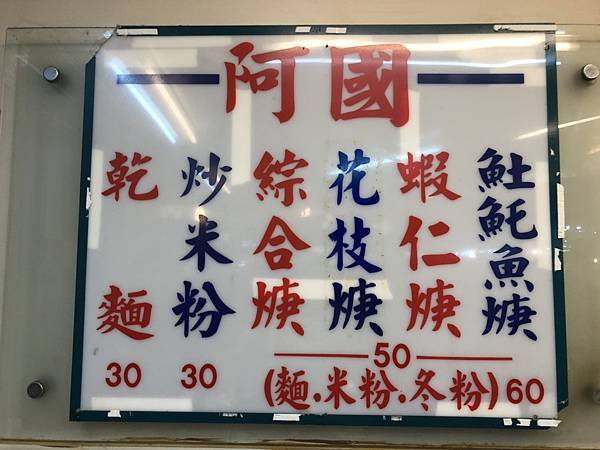 阿國
䰇魠魚焿
蝦仁焿
花枝焿
綜合焿
炒米粉
乾麵
50
30
30
(麵.米粉.冬粉)60